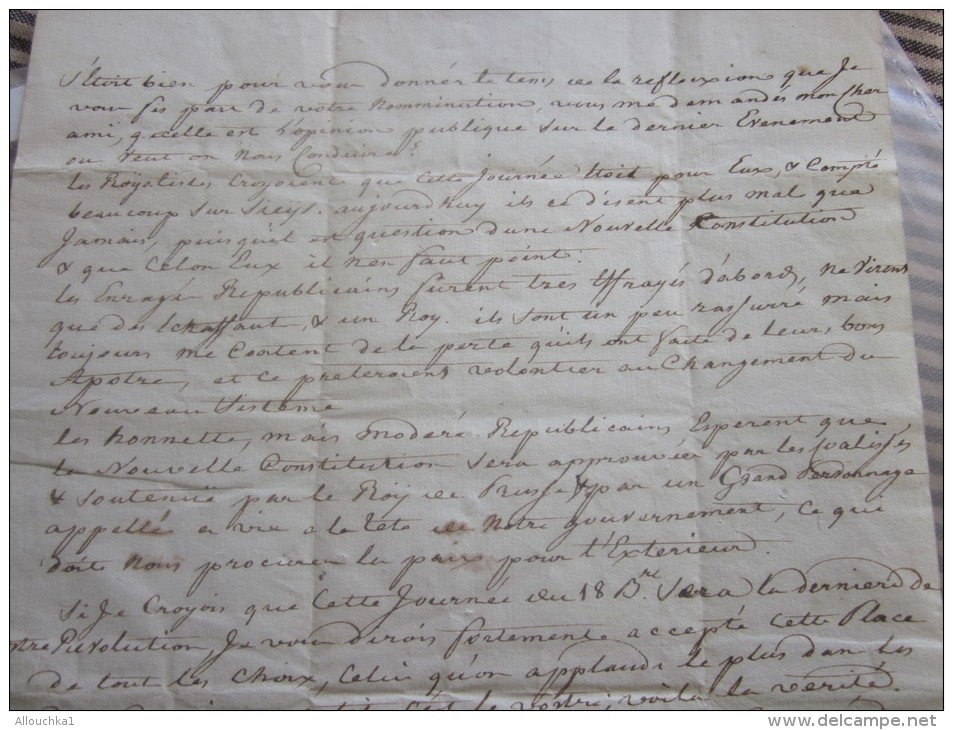 s'Etoit bien pour vous donner le tems de la reflexion que Je
vous fis part de votre Nomminution, vous me demandés mon cher
ami, quelle est l'opinion publique sur le dernier Evenement
ou veut on nous Conduire?
les Royalistes Croyoient que Cette Journée Etoit pour Eux, & Compté
beaucoup sur Sieys. aujourdhuy ils en disent plus mal que
Jamais, puisquil est question d'une Nouvelle Constitution
& que Celon Eux il n'en faut point.
les Enragé Republicains furent tres Effrayés d'abord, ne virent
que des Echaffaut, & un Roy. ils sont un peu rassurré mais
toujours me Content de la perte quils ont faite de leurs bons
Apotre, et ce preteroient volontier au Changement du
Nouveau Sisteme
les honnette, mais moderé Republicains Esperent que
la Nouvelle Constitution sera approuvée par les
& soutenuë par le Roy de Prusse & par un Grand Personnage
appellé en vie a la tete de Notre gouvernement, Ce qui
doit nous procurer la paix pour l'Exterieur.
Si Je Croyois que Cette Journée du 18 Bre. sera la derniere de
notre Revolution, Je vous dirois fortement accepté Cette Place
de tout les Choix, Celui qu'on applaudi le plus dan les
c'est le votre, voila la verité.
Allouchka1
delcampe.net